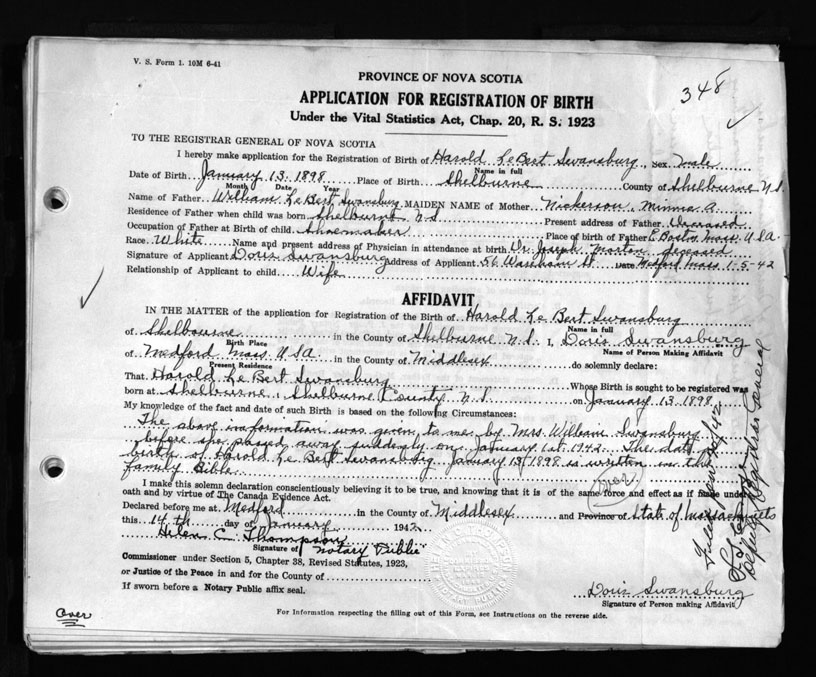 V. S. Form 1. 10M 6-41
348
PROVINCE OF NOVA SCOTIA
APPLICATION FOR REGISTRATION OF BIRTH
Under the Vital Statistics Act, Chap. 20, R. S. 1923
TO THE REGISTRAR GENERAL OF NOVA SCOTIA
I hereby make application for the Registration of Birth of Harold Le Bert Swansburg, Sex male
Name in full
Date of Birth January 13. 1898 Place of Birth Shelbourne County of Shelburne N.S.
Month Date Year
Name of Father William Le Bert Swansburg MAIDEN NAME of Mother Nickerson Minnie A.
Residence of Father when child was born Shelburne N.S. Present address of Father Deceased
Occupation of Father at Birth of child Shoemaker Place of birth of Father E. Boston Mass. U.S.A.
Race White Name and present address of Physician in attendance at birth Dr. Joseph Morton deceased
Signature of Applicant Doris Swansburg Address of Applicant 56 St Date Medford Mass 1-5-42
Relationship of Applicant to child Wife
AFFIDAVIT
IN THE MATTER of the application for Registration of the Birth of Harold Le Bert Swansburg
Name in full
of Shelbourne in the County of Shelburne N.S. I, Doris Swansburg
Birth Place Name of Person Making Affidavit
of Medford Mass USA in the County of Middlesex do solemnly declare:
Present Residence
That Harold Le Bert Swansburg Whose Birth is sought to be registered was
born at Shelburne, Shelburne County N.S. on January 13. 1898.
My knowledge of the fact and date of such Birth is based on the following Circumstances:
The above information was given to me by Mrs. William Swansburg
before she passed away suddenly on January 1st 1942. The date
birth of Harold Le Bert Swansburg January 13, 1898 is written in the
family Bible.
(over)
I make this solemn declaration conscientiously believing it to be true, and knowing that it is of the same force and effect as if made under
oath and by virtue of The Canada Evidence Act.
Declared before me at Medford in the County of Middlesex and Province of State of Massachusetts
this 14 th day of January 1942
Helen C. Thompson
Signature of Notary Public
Commissioner under Section 5, Chapter 38, Revised Statutes, 1923,
or Justice of the Peace in and for the County of
If sworn before a Notary Public affix seal.
Doris Swansburg
Signature of Person making Affidavit
Over
For Information respecting the filling out of this Form, see Instructions on the reverse side.
Deputy Registrar General